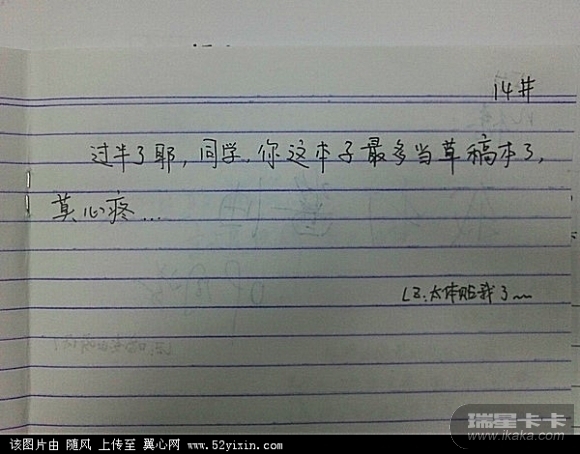 14井
过半了耶，同学，你这本子最多当草稿本了，
莫心疼...
LZ:太体贴我了~~
瑞星卡卡
www.ikaka.com
该图片由 随风 上传至 翼心网 www.52yixin.com